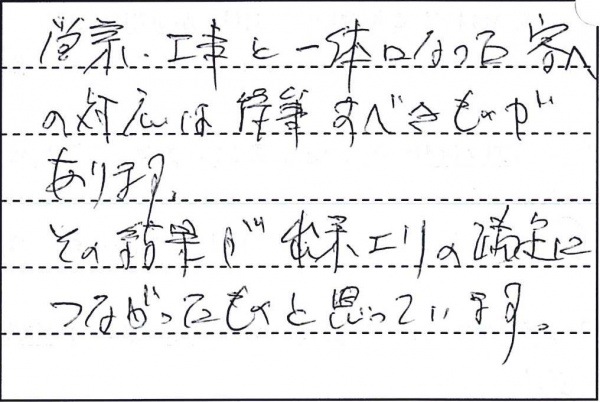 営業・工事と一体になった客へ
の対応は特筆すべきものが
あります。
その結果が出来エリの満足に
つながったものと思っています。